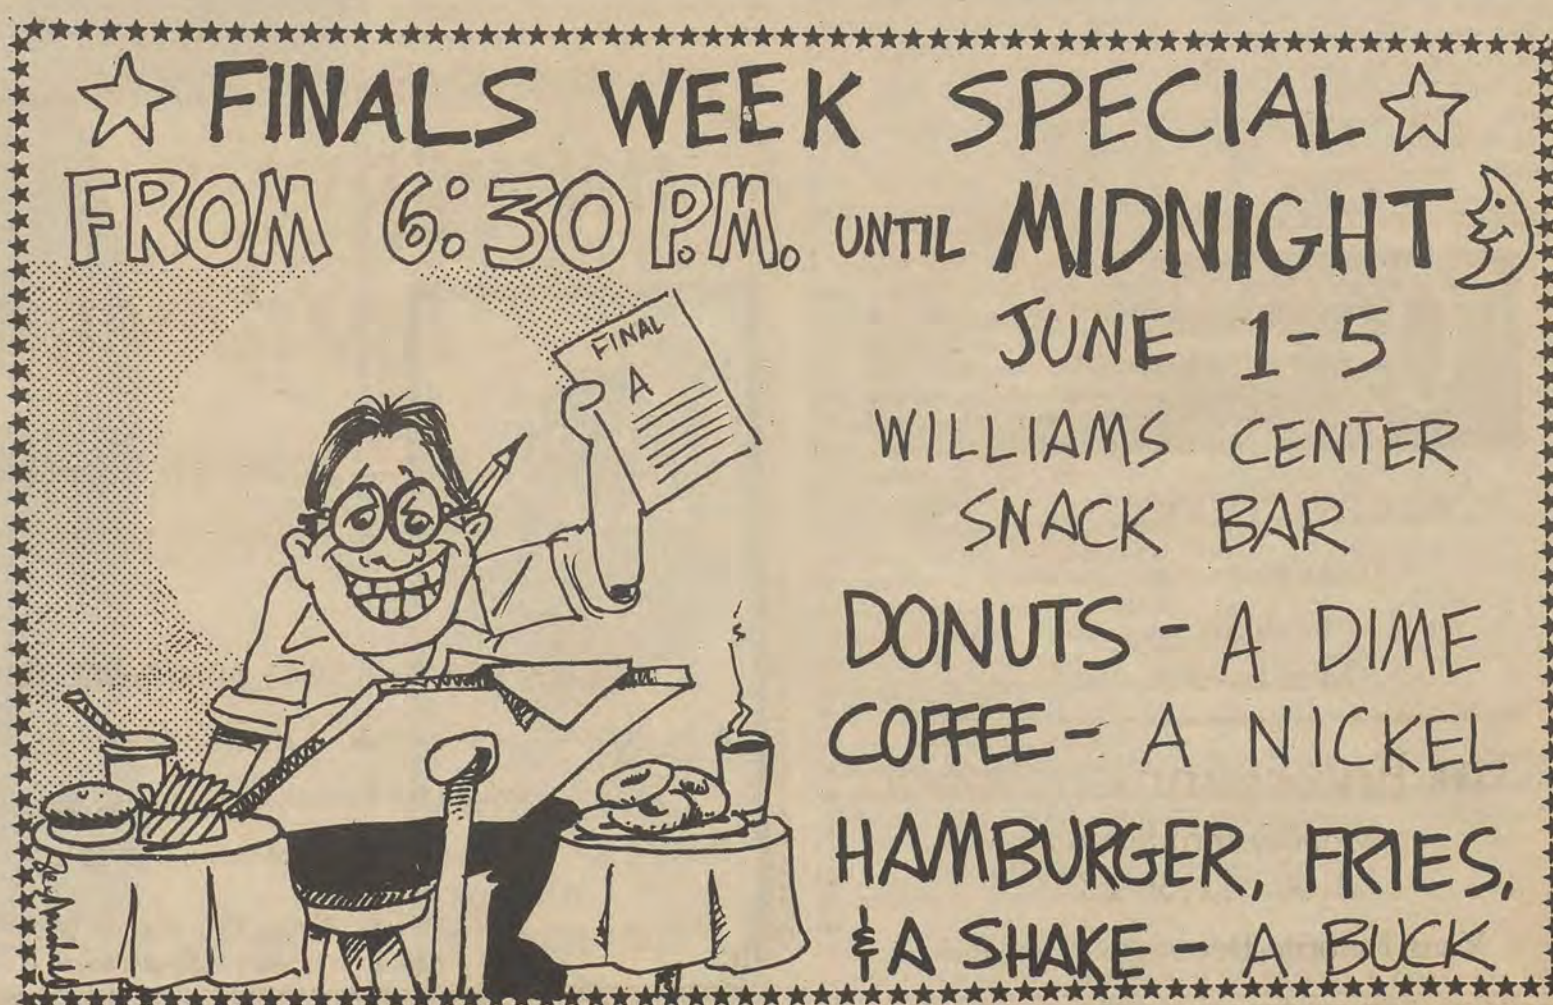 FINALS WEEK SPECIAL
FROM 6:30 P.M. UNTIL MIDNIGHT
JUNE 1-5
WILLIAMS CENTER
SNACK BAR
DONUTS - A DIME
COFFEE - A NICKEL
HAMBURGER, FRIES,
& A SHAKE - A BUCK
FINAL
A